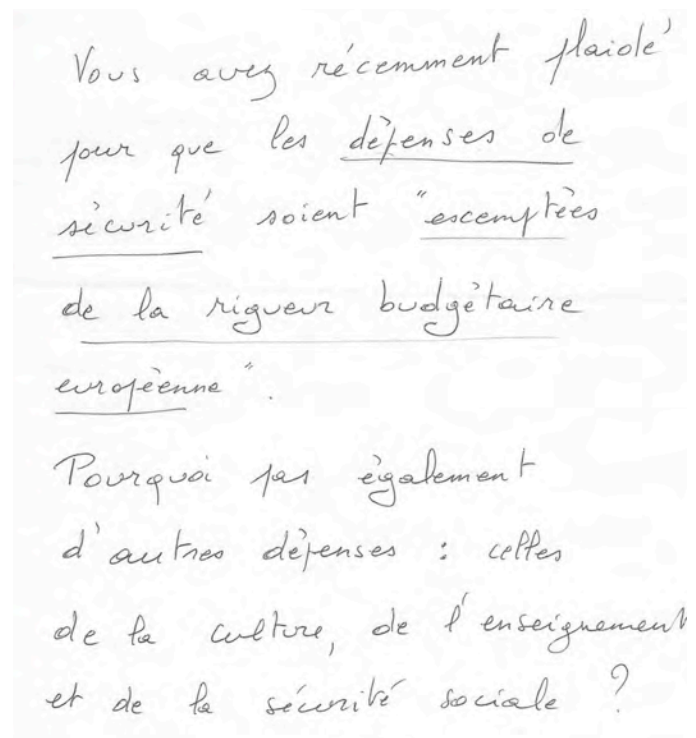 Vous avez récemment plaidé
pour que les dépenses de
sécurité soient "escemptées
de la rigueur budgétaire
européenne".
Pourquoi pas également
d'autres dépenses : celles
de la culture, de l'enseignement
et de la sécurité sociale ?